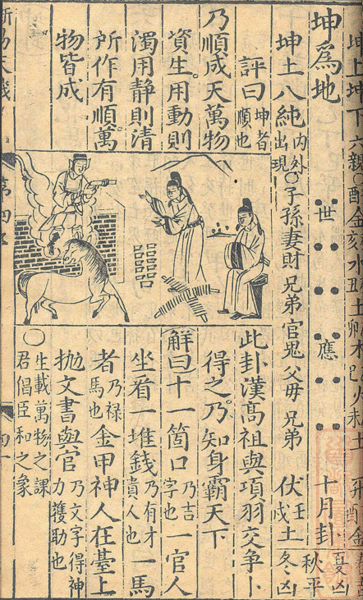 坤上坤下六親酉金亥水丑土卯木巳火未土
夏凶
坤為地
世
應
十月卦
秋平
坤土八純內外出現○子孫妻財兄弟官鬼父母兄弟
冬凶
評曰坤者順也
乃順成天萬物
資生用動則
濁用靜則清
所作有順萬
物皆成
此卦漢高祖與項羽交爭卜
得之乃知身霸天下
解曰十一箇口乃吉字也一官人
坐看一堆錢乃有才貴人也一馬
者乃祿馬也金甲神人在臺上
拋文書與官乃文字得神力獲助也
○生載萬物之課
君倡臣和之象